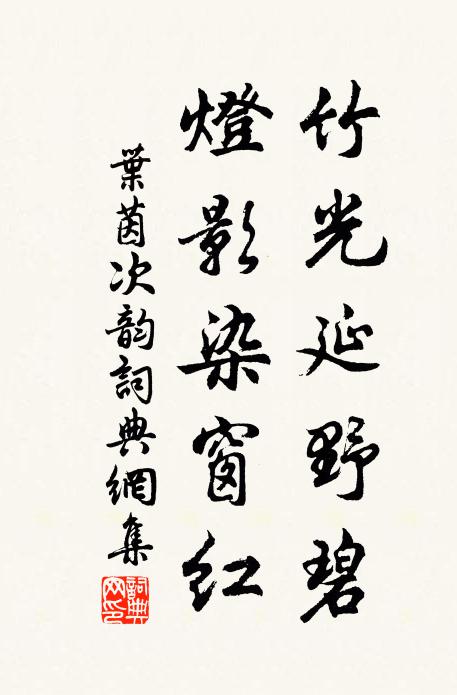 竹光延野碧
燈影染窗紅
葉茵次韵詞典網集
詞典网印